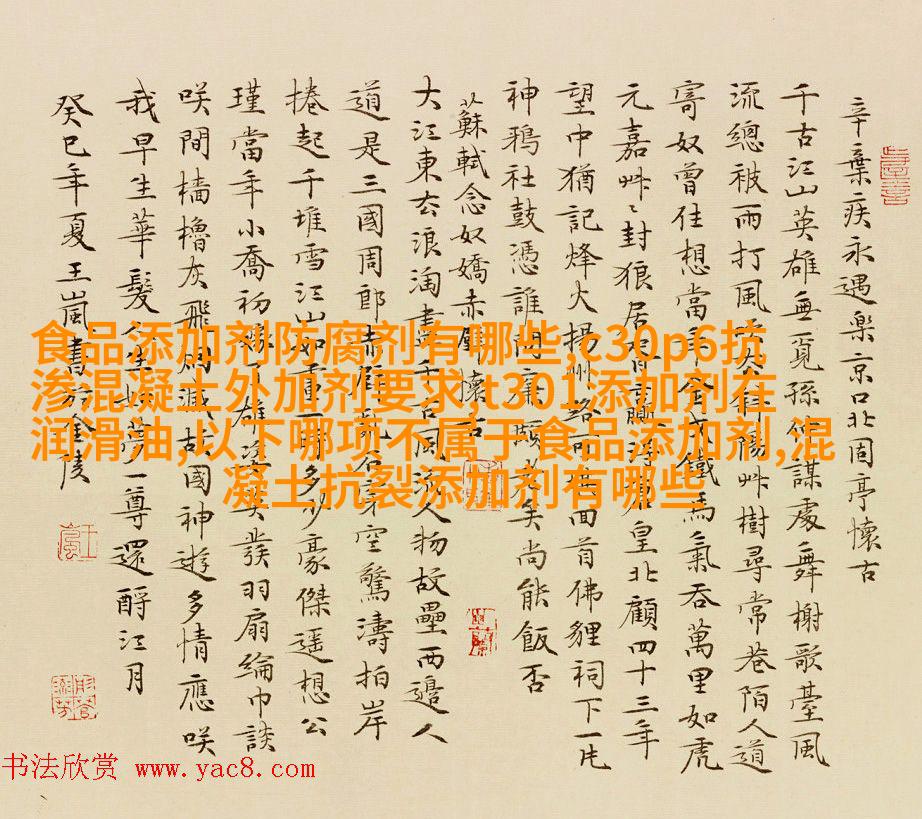 辛棄疾永遇樂京口北固亭懷古
千古江山英雄無覓孫仲謀處舞榭歌臺風
流總被雨打風吹去斜陽艸樹尋常巷陌人道
寄奴曾住想當年金戈鐵馬氣吞萬里如虎
元嘉艸〻封狼居胥贏得倉皇北顧四十三年
望中猶記烽火揚州路可堪回首佛貍祠下一片
神鴉社鼓憑誰問廉頗老矣尚能飯否
蘇軾念奴嬌赤壁懷古
大江東去浪淘盡千古風流人物故壘西邊人
道是三國周郎赤壁亂石穿空驚濤拍岸
捲起千堆雪江山如畫一時多少豪傑遙想公
瑾當年小喬初嫁了雄姿英發羽扇綸巾談
咲間檣櫓灰飛煙滅故國神遊多情應咲
我早生華髮人生如夢一尊還酹江月
癸巳年夏王嵐書於金陵
食品添加剂防腐剂有哪些,c30p6抗
渗混凝土外加剂要求,t301添加剂在
润滑油,以下哪项不属于食品添加剂,混
凝土抗裂添加剂有哪些
书法欣赏 www.yac8.com